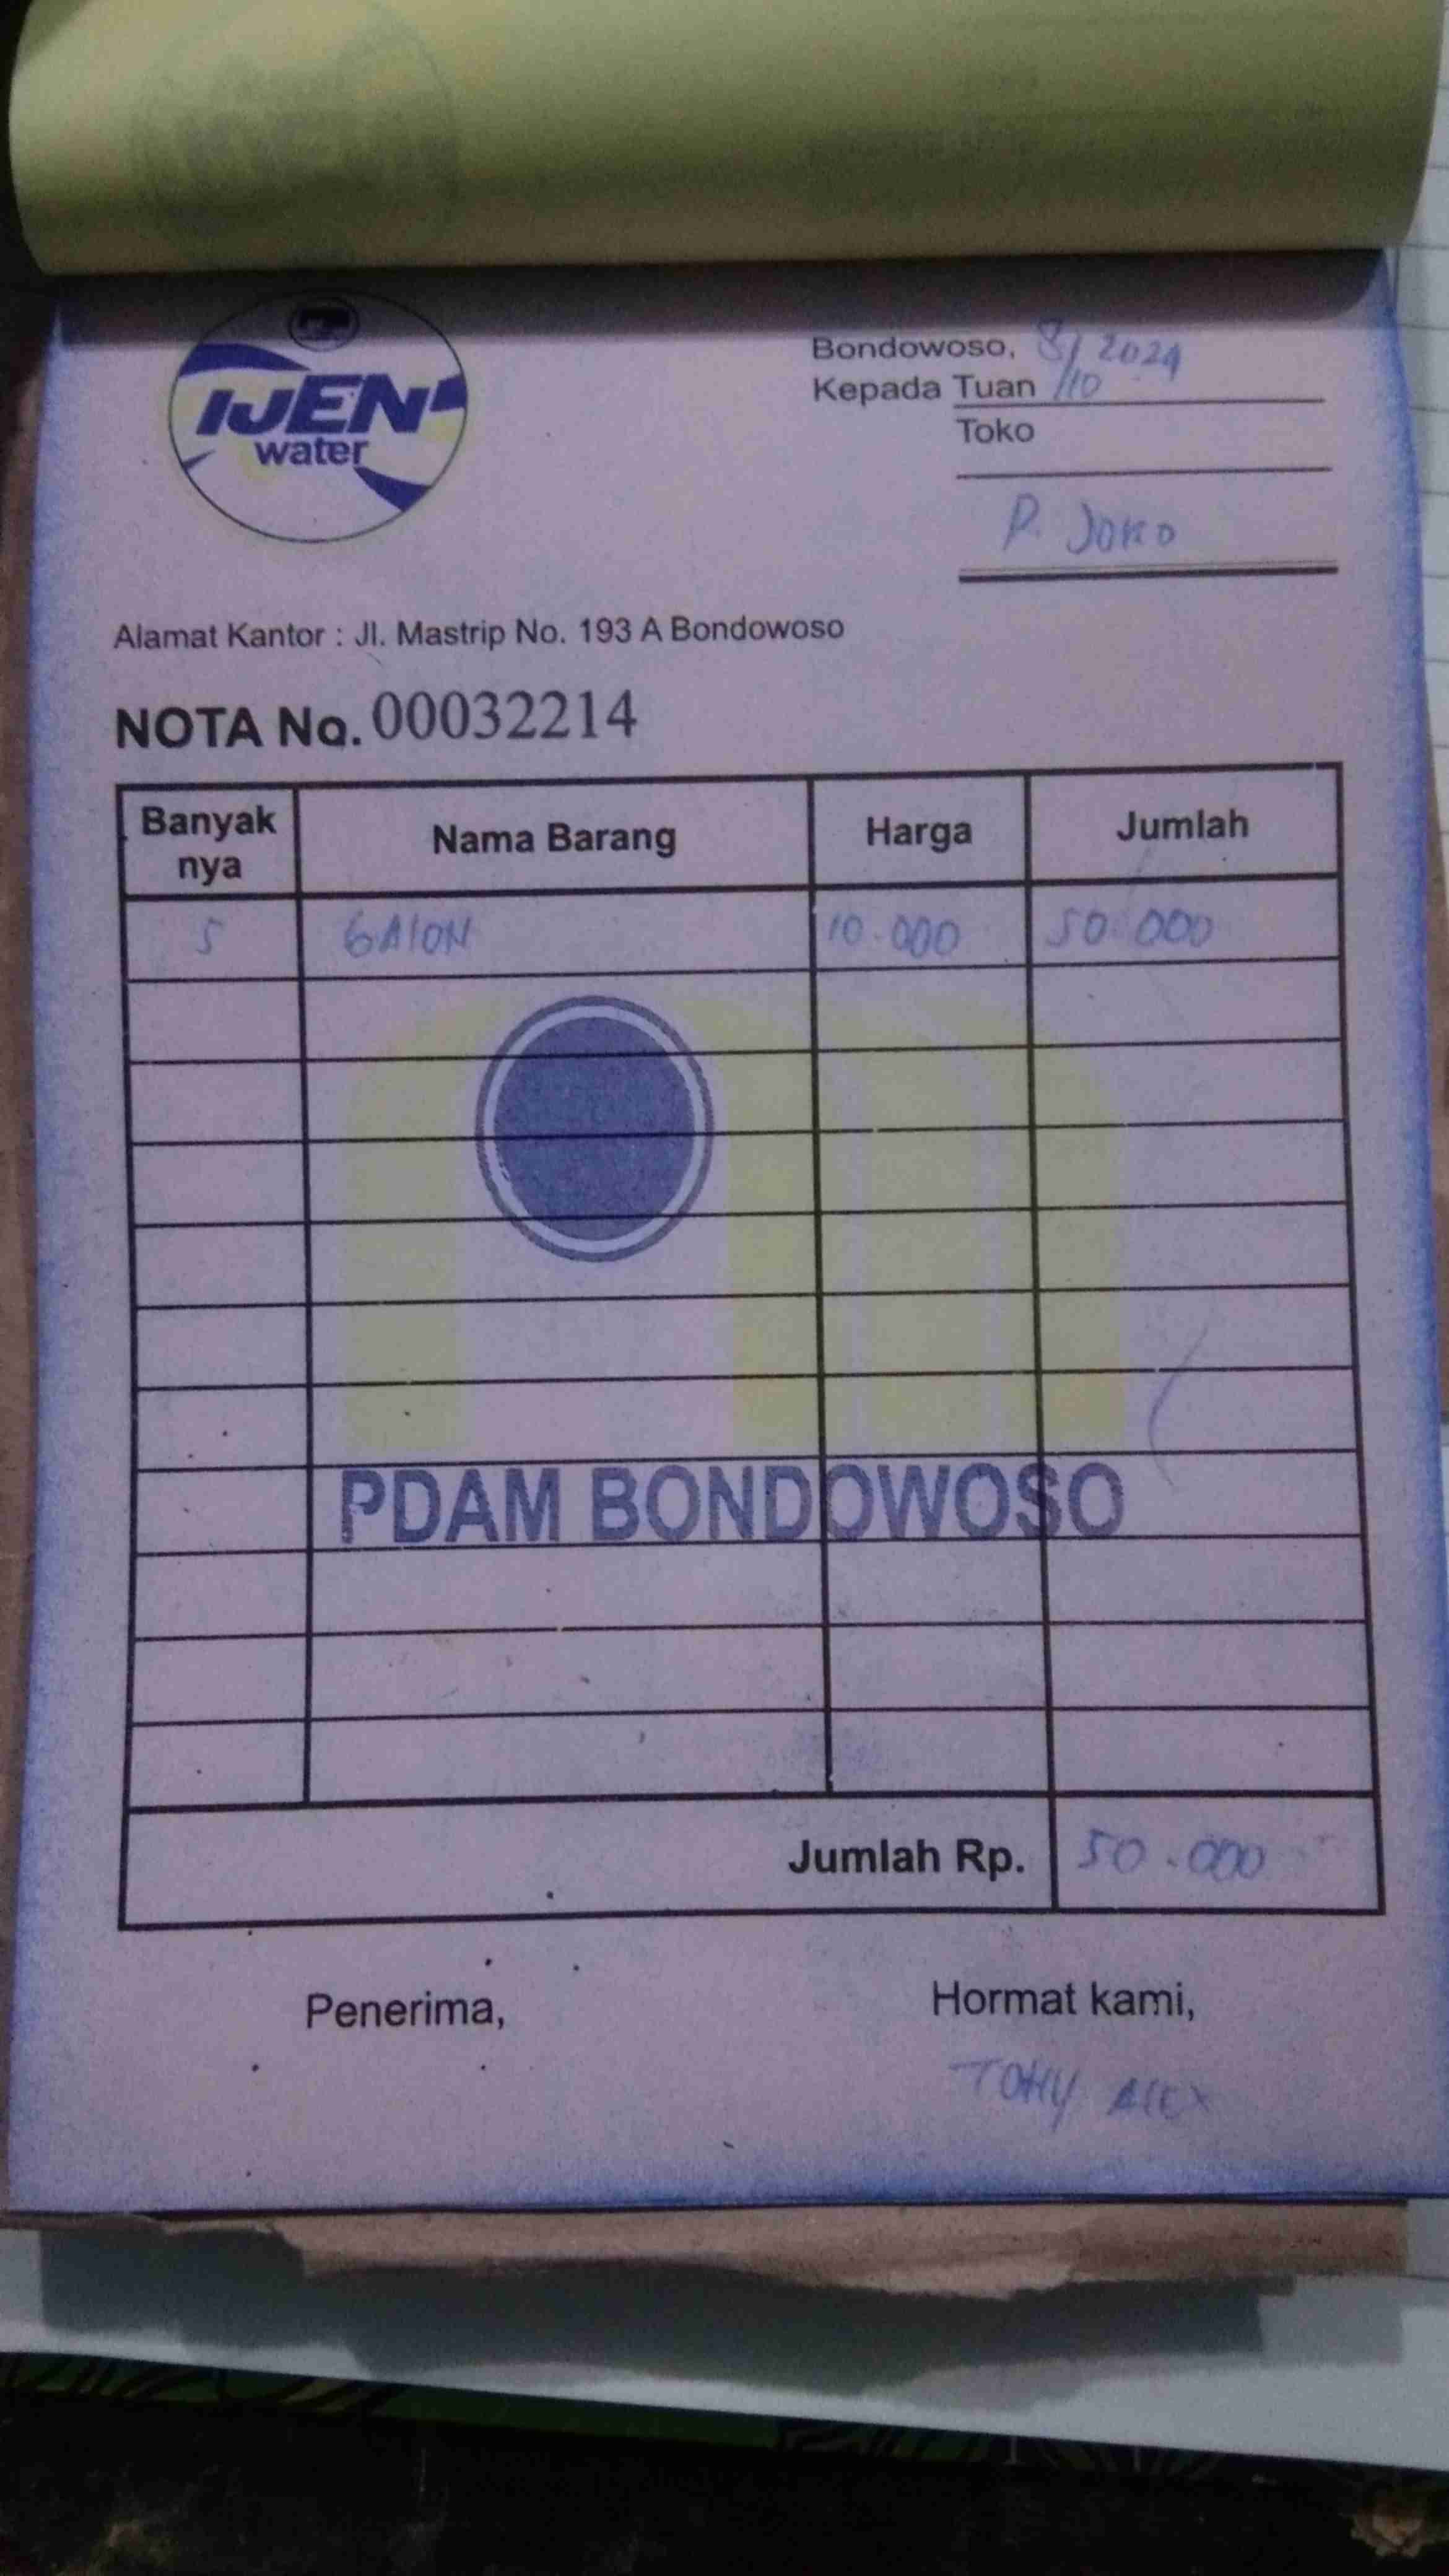 IJEN
water
Bondowoso, 8/10 2024
Kepada Tuan
Toko
P. Joko
Alamat Kantor : Jl. Mastrip No. 193 A Bondowoso
NOTA No. 00032214
Banyak nya Nama Barang Harga Jumlah
5 GAlON 10.000 50.000
PDAM BONDOWOSO
Jumlah Rp. 50.000
Penerima, Hormat kami,
TONY AlEX